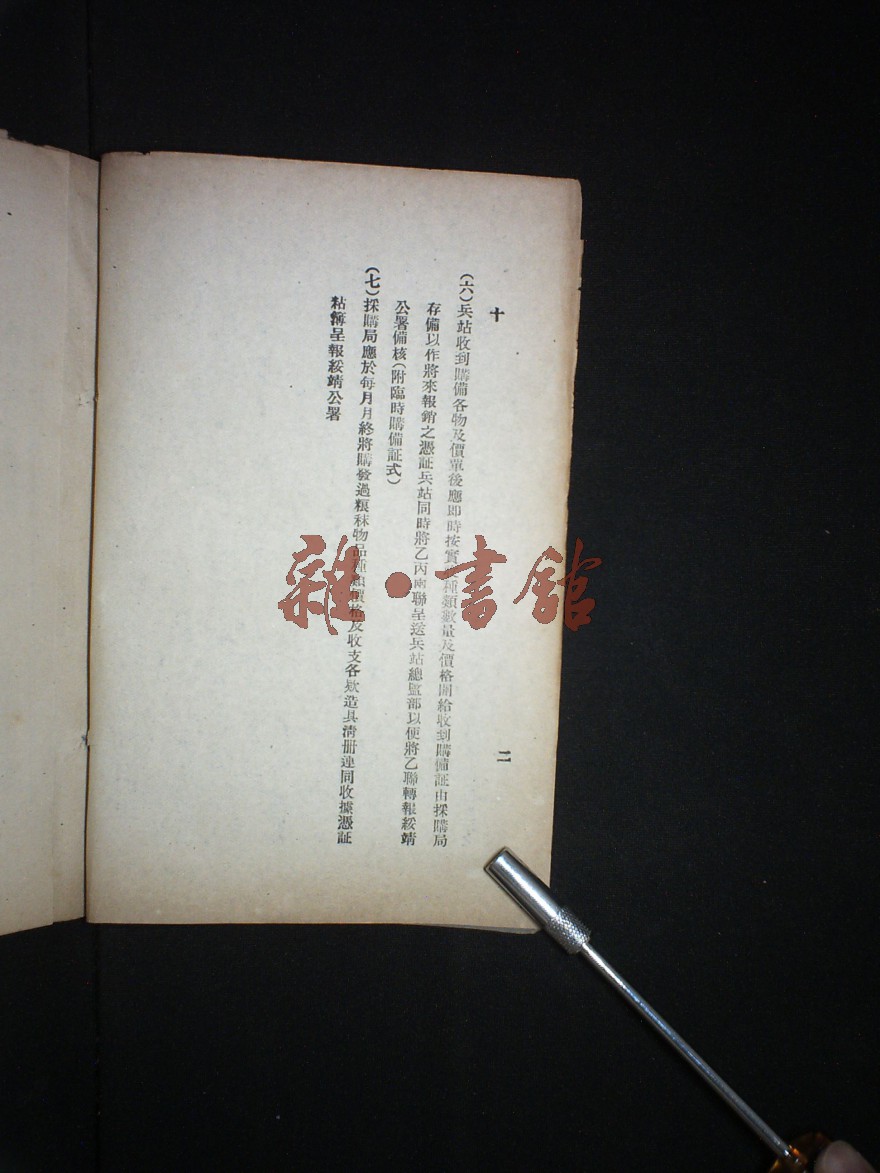 十
二
(六)兵站收到購備各物及價單後應即時按實種類數量及價格開給收到購備証由採購局
存備以作將來報銷之憑証兵站同時將乙丙兩聯呈送兵站總監部以便將乙聯轉報綏靖
公署備核(附臨時購備証式)
(七)採購局應於每月月終將購發過糧秣物品種類價格及收支各欵造具清册連同收據憑証
粘簿呈報綏靖公署
雜·書館